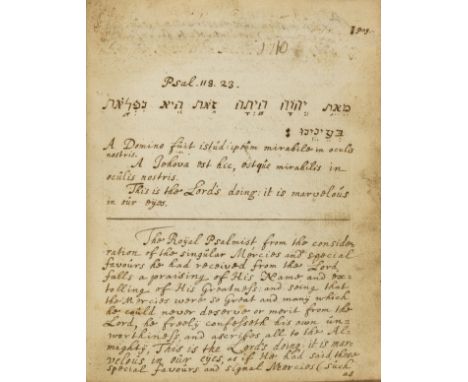 1710
Psal. 118. 23.
מֵאֵת יְהוָה הָיְתָה זֹאת הִיא נִפְלָאת
בְּעֵינֵינוּ :
A Domino fúit istúd: ipsúm mirabile in ocúlis
nostris.
A Jehova est hic, estqúe mirabilis in
ocúlis nostris.
This is the Lords doing: it is marvelous
in oúr eyes.
The Royal Psalmist from the conside-
ration of the singular Mercies and special
favoúrs he had received from the Lord,
falls a praising of His Name and ex-
tolling of His Greatness: and seing that
the Mercies were so Great and many which
he coúld never deserve or merit from the
Lord, he freely confesseth his own ún-
worthiness and ascrifes all to the Al-
mighty, This is the Lords doing: it is mar-
velous in oúr eyes, as if He had said these
special favoúrs and signal Mercies (súch
as